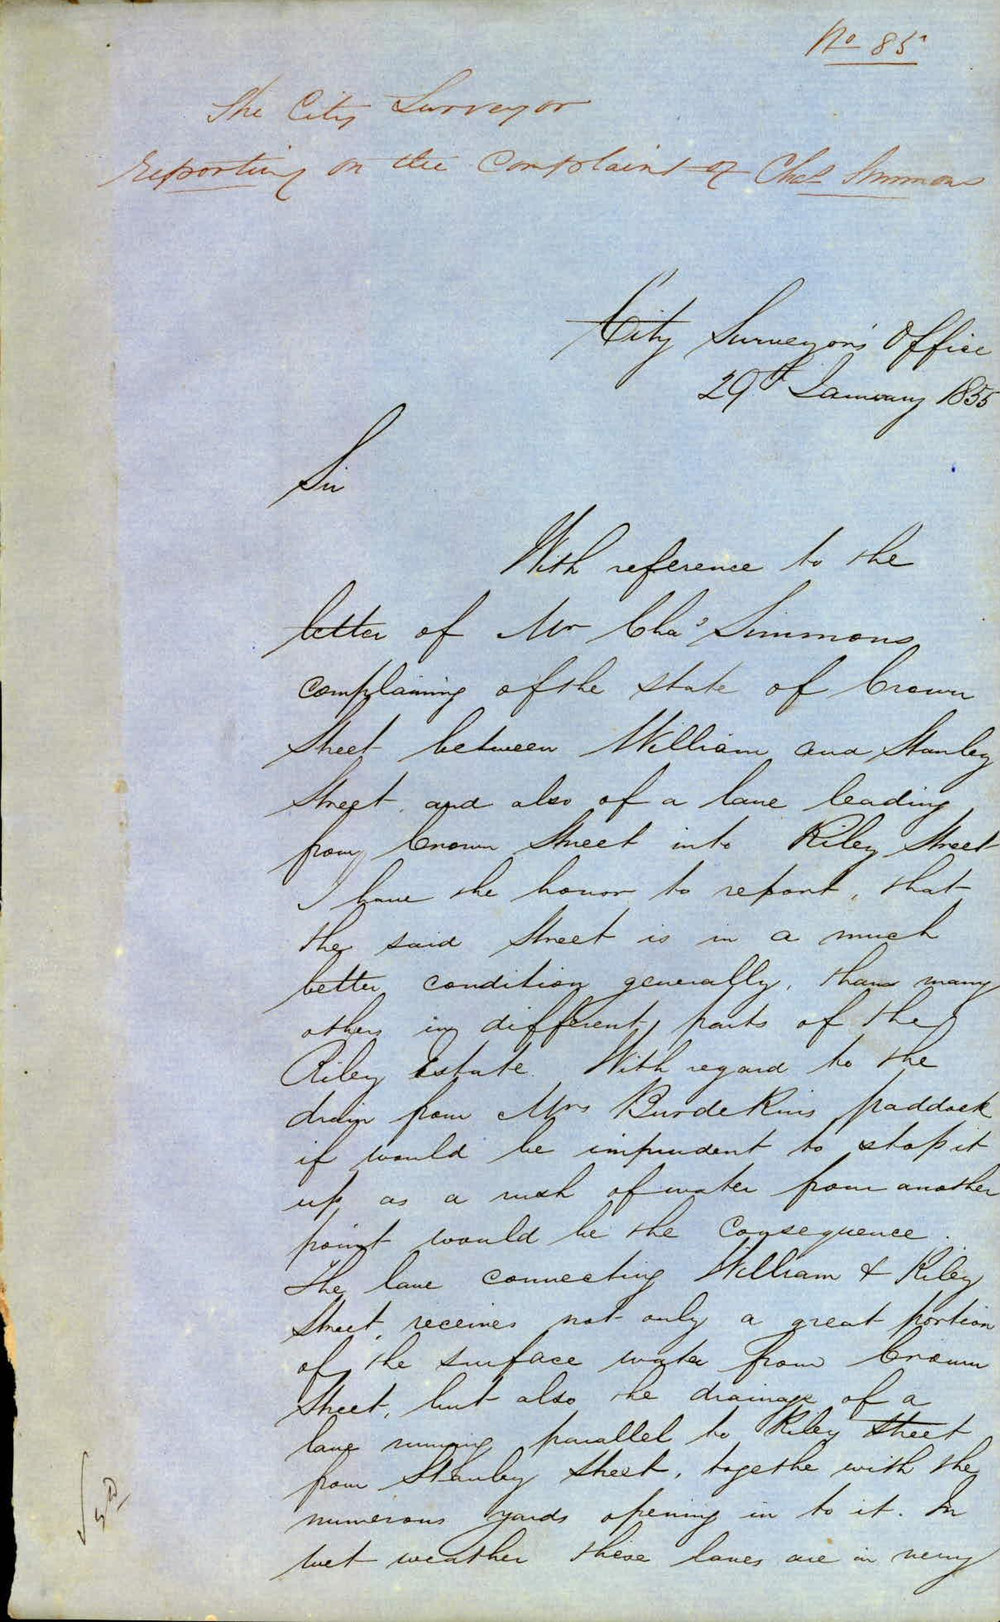 No 85
The City Surveyor
Reporting on the Complaint of Chas Simmons
City Surveyor's Office
29th January 1855
Sir
With reference to the
letter of Mr Chas Simmons
complaining of the state of Crown
Street between William and Stanley
Street, and also of a lane leading
from Crown Street into Riley Street
I have the honor to report, that
the said Street is in a much
better condition generally, than many
others in different parts of the
Riley Estate. With regard to the
drain from Mrs Burdekins paddock
if would be imprudent to stop it
up as a rush of water from another
point would be the consequence.
The lane connecting William & Riley
Street, receives not only a great portion
of the surface water from Crown
Street, but also the drainage of a
lane running parallel to Riley Street
from Stanley Street, togethe with the
numerous yards opening in to it. In
wet weather these lanes are in very